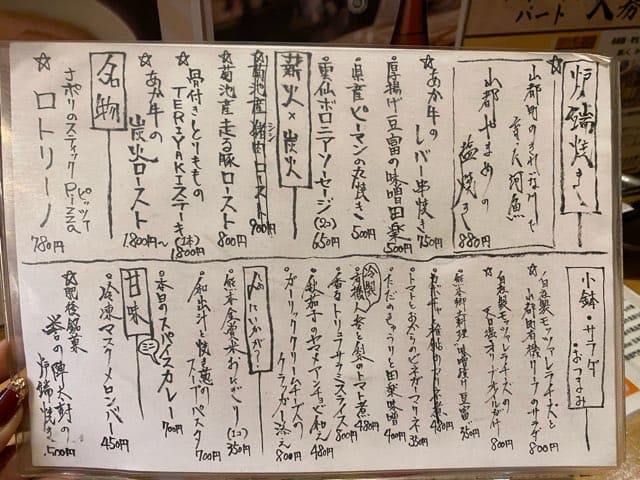 炉端焼き
山都町のきれいな
育った河魚
山都やまめの
塩焼き 880円
☆あか牛の
レバー串焼き 750円
・厚揚げ豆富の味噌田楽 500円
・県産ピーマンの丸焼き 500円
・雲仙ボロニアソーセージ(2コ) 650円
薪火×炭火
☆菊池産猪肉ロースト 900円
☆菊池産走る豚ロースト 800円
☆骨付きとりももの
TERIYAKIステーキ(1本) 1,800円
☆あか牛の
炭火ロースト 1,800円~
名物
☆ナポリのスティックPizza
ピッツァ
ロトリーノ 780円
小鉢・サラダ
おつまみ
・自家製モッツァレラチーズと
山都町有機リーフのサラダ 800円
☆自家製モッツァレラチーズの
天日塩オリーブオイルがけ 800円
☆熊本郷土料理 味噌漬け豆富 350円
・トマトとおからのビネガーマリネ 350円
・ただのきゅうりと田楽味噌 400円
冷製
・有機人参と的トマト煮 480円
・香るトリュフサラミスライス 800円
・秋茄子のヤマメアンチョビ和え 480円
・ガーリッククリームチーズの
クラッカー添え 800円
〆にいかがで
・熊本倉岳米おにぎり(1コ) 350円
・和出汁と焼き葱の
スープパスタ 700円
・本日のスパイスカレー 700円
ミニ
甘味
・冷凍マスクメロンバー 450円
☆肥後銘菓
誉の陣太鼓の
炉端焼き 500円